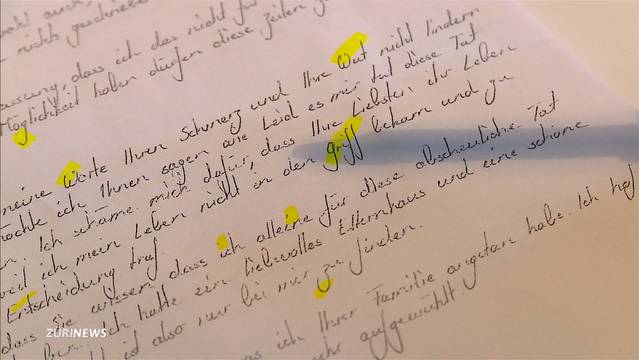 wohl auch,
nichts geschrieben
dass ich das nicht für
Möglichkeit haben dürfen diese Zeilen zu
meine Worte Ihren Schmerz und Ihre Wut nicht lindern
möchte ich Ihnen sagen wie Leid es mir tut diese Tat
Ich schäme mich dafür, dass Ihre Liebsten ihr Leben
weil ich mein Leben nicht in den Griff bekam und zu
Entscheidung traf.
dass Sie wissen, dass ich alleine für diese abscheuliche Tat
Ich hatte ein liebevolles Elternhaus und eine schöne
ist also nur bei mir zu finden.
was ich Ihrer Familie angetan habe. Ich hof
sehr aufgewühlt
ZÜRINEWS